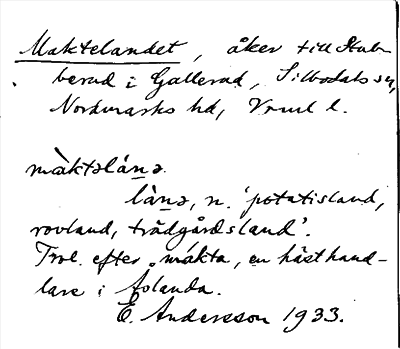 Maktelandet, åker till Stub-
berud i Gallerud, Silbodals sn,
Nordmarks hd, Vrml l.
màktəlánə.
lànə, n. 'potatisland,
rovland, trädgårdsland'.
Trol. efter måkta, en hästhand-
lare i Åolanda.
E. Andersson 1933.